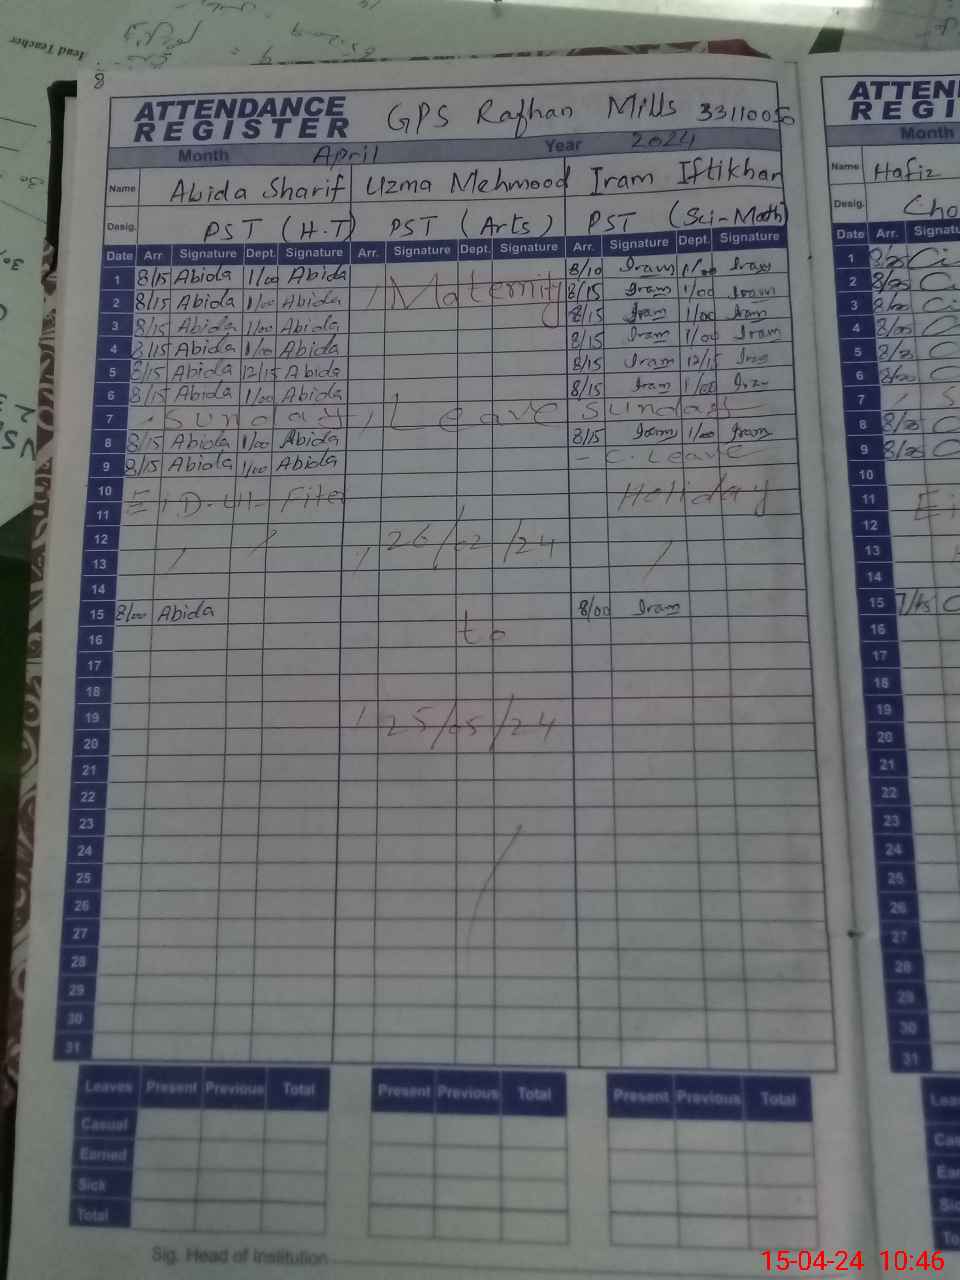 8
ATTENDANCE REGISTER GPS Rafhan Mills 33110050
Month April Year 2024
Name Abida Sharif Uzma Mehmood Iram Iftikhar
Desig. PST (H.T) PST (Arts) PST (Sci-Math)
Date Arr. Signature Dept. Signature Arr. Signature Dept. Signature Arr. Signature Dept. Signature
1 8/15 Abida 1/00 Abida 8/10 Iram 1/00 Iram
2 8/15 Abida 1/00 Abida Maternity 8/15 Iram 1/00 Iram
3 8/15 Abida 1/00 Abida 8/15 Iram 1/00 Iram
4 8/15 Abida 1/00 Abida 8/15 Iram 1/00 Iram
5 8/15 Abida 12/15 Abida 8/15 Iram 12/15 Iram
6 8/15 Abida 1/00 Abida 8/15 Iram 1/00 Iram
7 Sunday Leave Sunday
8 8/15 Abida 1/00 Abida 8/15 Iram 1/00 Iram
9 8/15 Abida 1/00 Abida - C. Leave
10 E I D-Ul-Fiter Holiday
11
12 26/02/24
13
14
15 8/00 Abida 8/00 Iram
16 to
17
18
19 25/05/24
20
21
22
23
24
25
26
27
28
29
30
31
Leaves Present Previous Total Present Previous Total Present Previous Total
Casual
Earned
Sick
Total
Sig. Head of Institution
ATTEN
REGI
Month
Name Hafiz
Desig. Cho
Date Arr. Signatu
1
2 8/25
3
4
5
6
7 S
8 8/25
9 8/25
10
11 Ei
12
13
14
15 7/45
16
17
18
19
20
21
22
23
24
25
26
27
28
29
30
31
Lea
Cas
Ear
Sic
To
Head Teacher
15-04-24 10:46